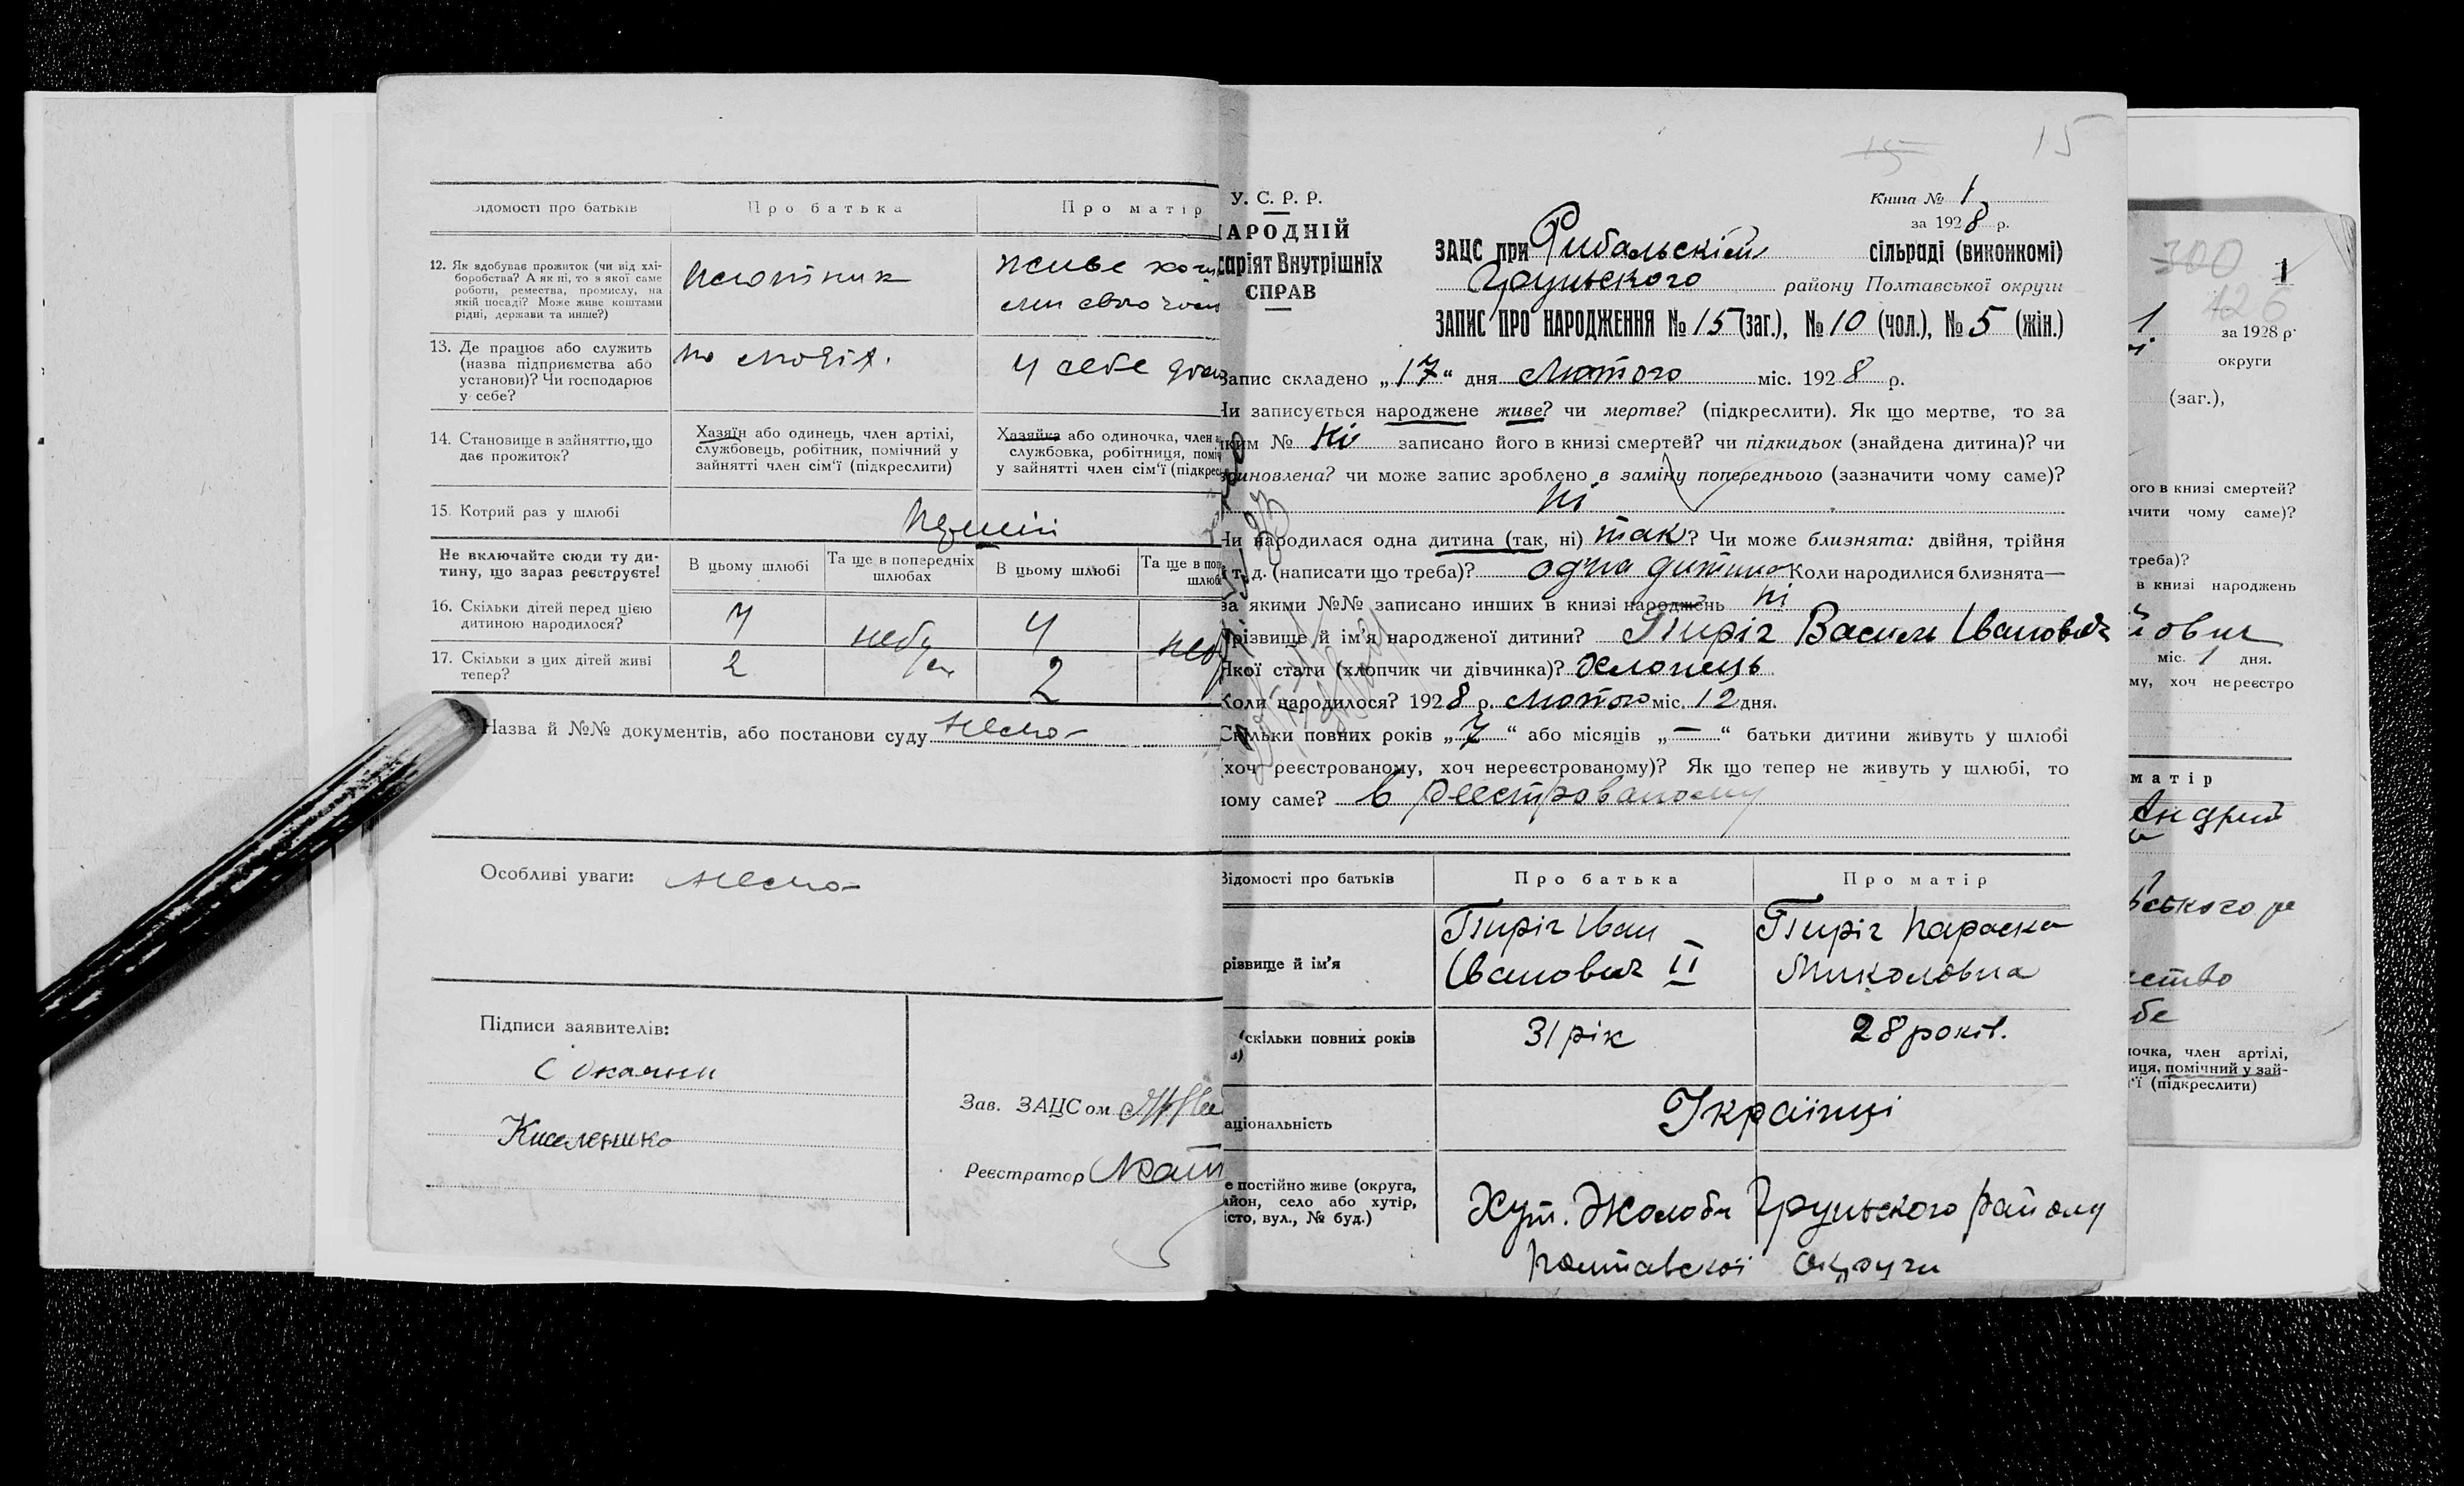 Відомості про батьків
Про батька
Про матір
12. Як здобуває прожиток (чи від хлі-
боробства? А як ні, то з якої саме
роботи, ремества, промислу, на
якій посаді? Може живе коштами
рідні, держави та инше?)
живе
13. Де працює або служить
(назва підприємства або
установи)? Чи господарює
у себе?
У себе
14. Становище в зайняттю, що
дає прожиток?
Хазяїн або одинець, член артілі,
службовець, робітник, помічний у
зайнятті член сім'ї (підкреслити)
Хазяйка або одиночка, член
службовка, робітниця, помі
у зайнятті член сім'ї (підкрес
15. Котрий раз у шлюбі
Не включайте сюди ту ди-
тину, що зараз реєструєте!
В цьому шлюбі
Та ще в попередніх
шлюбах
В цьому шлюбі
Та ще в поп
шлюб
16. Скільки дітей перед цією
дитиною народилося?
4
4
17. Скільки з цих дітей живі
тепер?
2
2
Назва й №№ документів, або постанови суду
Особливі уваги:
Підписи заявителів:
Зав. ЗАЦСом
Реєстратор
15
15
У. С. Р. Р.
АРОДНІЙ
саріят Внутрішніх
СПРАВ
Книга № 1
за 1928 р.
ЗАЦС при Рибальскій сільраді (виконкомі)
Грунського району Полтавської округи
ЗАПИС ПРО НАРОДЖЕННЯ № 15 (заг.), № 10 (чол.), № 5 (жін.)
Запис складено „17“ дня Лютого міс. 1928 р.
Чи записується народжене живе? чи мертве? (підкреслити). Як що мертве, то за
яким № ні записано його в книзі смертей? чи підкидьок (знайдена дитина)? чи
вриновлена? чи може запис зроблено в заміну попереднього (зазначити чому саме)?
ні
Чи народилася одна дитина (так, ні) так? Чи може близнята: двійня, трійня
і т. д. (написати що треба)? одна дитина Коли народилися близнята—
за якими №№ записано инших в книзі народжень ні
Прізвище й ім'я народженої дитини? Пиріг Василь Іванович
Якої стати (хлопчик чи дівчинка)? Хлопець
Коли народилося? 1928 р. Лютого міс. 12 дня.
Скільки повних років „7“ або місяців „—“ батьки дитини живуть у шлюбі
(хоч реєстрованому, хоч нереєстрованому)? Як що тепер не живуть у шлюбі, то
чому саме? в реєстрованому
Відомості про батьків
Про батька
Про матір
різвище й ім'я
Пиріг Іван
Іванович II
Пиріг Параска
Миколовна
скільки повних років
31 рік
28 років.
аціональність
Українці
е постійно живе (округа,
айон, село або хутір,
істо, вул., № буд.)
Хут. Жолоби Грунського району
Полтавскої округи
300
126
1
1
за 1928 р.
округи
(заг.),
ого в книзі смертей?
ачити чому саме)?
треба)?
в книзі народжень
міс. 1 дня.
му, хоч нереєстро
матір
Андрий
ського
ство
бе
ночка, член артілі,
иця, помічний у зай-
'ї (підкреслити)